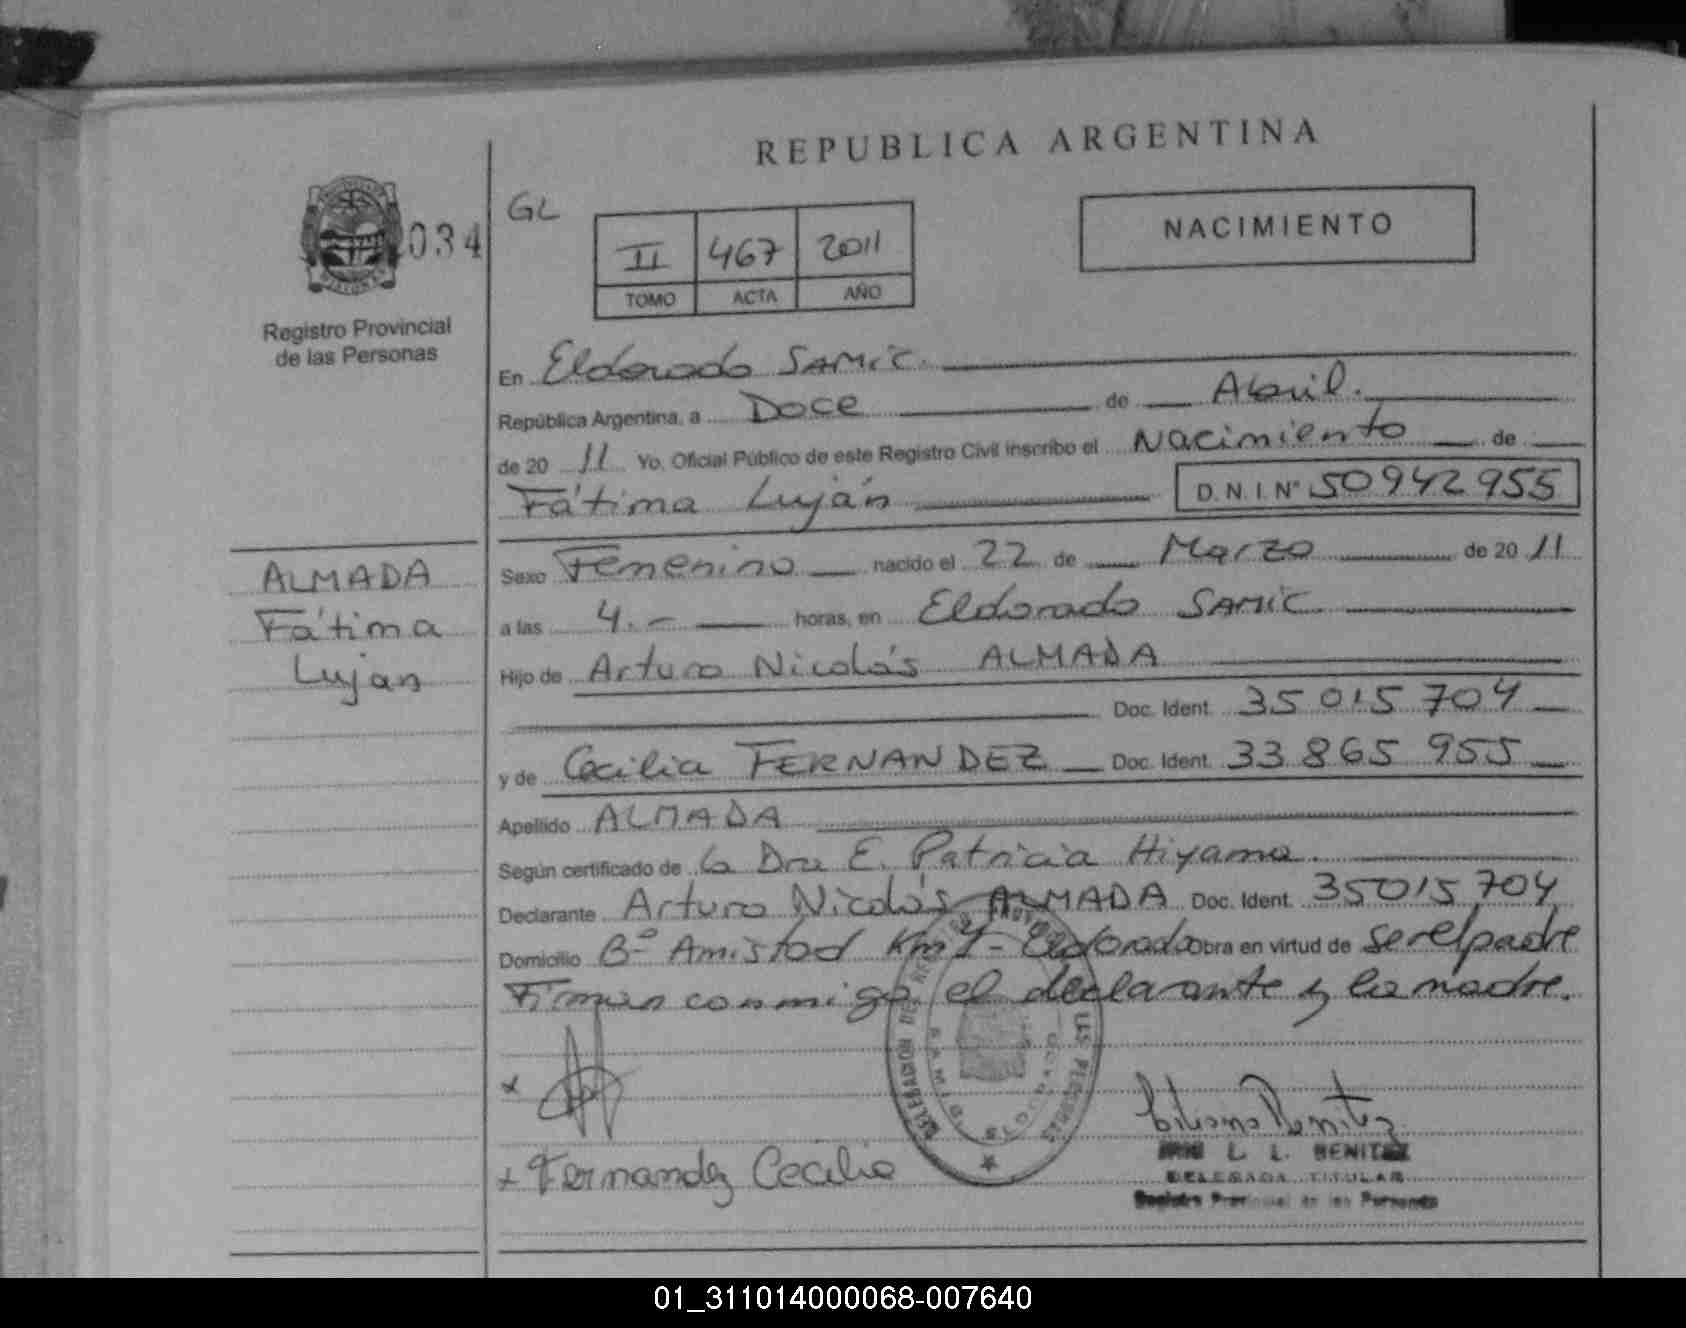 REPUBLICA ARGENTINA
034
GL
NACIMIENTO
II 467 2011
TOMO ACTA AÑO
Registro Provincial
de las Personas
En Eldorado SAMIC.
República Argentina, a Doce de Abril.
de 20 11 Yo, Oficial Público de este Registro Civil inscribo el Nacimiento de
Fátima Luján D.N.I. Nº 50942955
ALMADA
Fátima
Lujan
Sexo Femenino nacido el 22 de Marzo de 20 11
a las 4.- horas, en Eldorado SAMIC
Hijo de Arturo Nicolás ALMADA
Doc. Ident. 35 015 704
y de Cecilia FERNANDEZ Doc. Ident. 33 865 955
Apellido ALMADA
Según certificado de la Dra E. Patricia Hiyama.
Declarante Arturo Nicolás ALMADA Doc. Ident. 35015704
Domicilio Bº Amistad Km - Eldorado obra en virtud de ser el padre
Firman conmigo el declarante y la madre.
DELEGACION DE LAS PERSONAS
x
x Fernandez Cecilia
Liliana Benitez
L. L. BENITEZ
DELEGADA TITULAR
Registro Provincial de las Personas
01_311014000068-007640